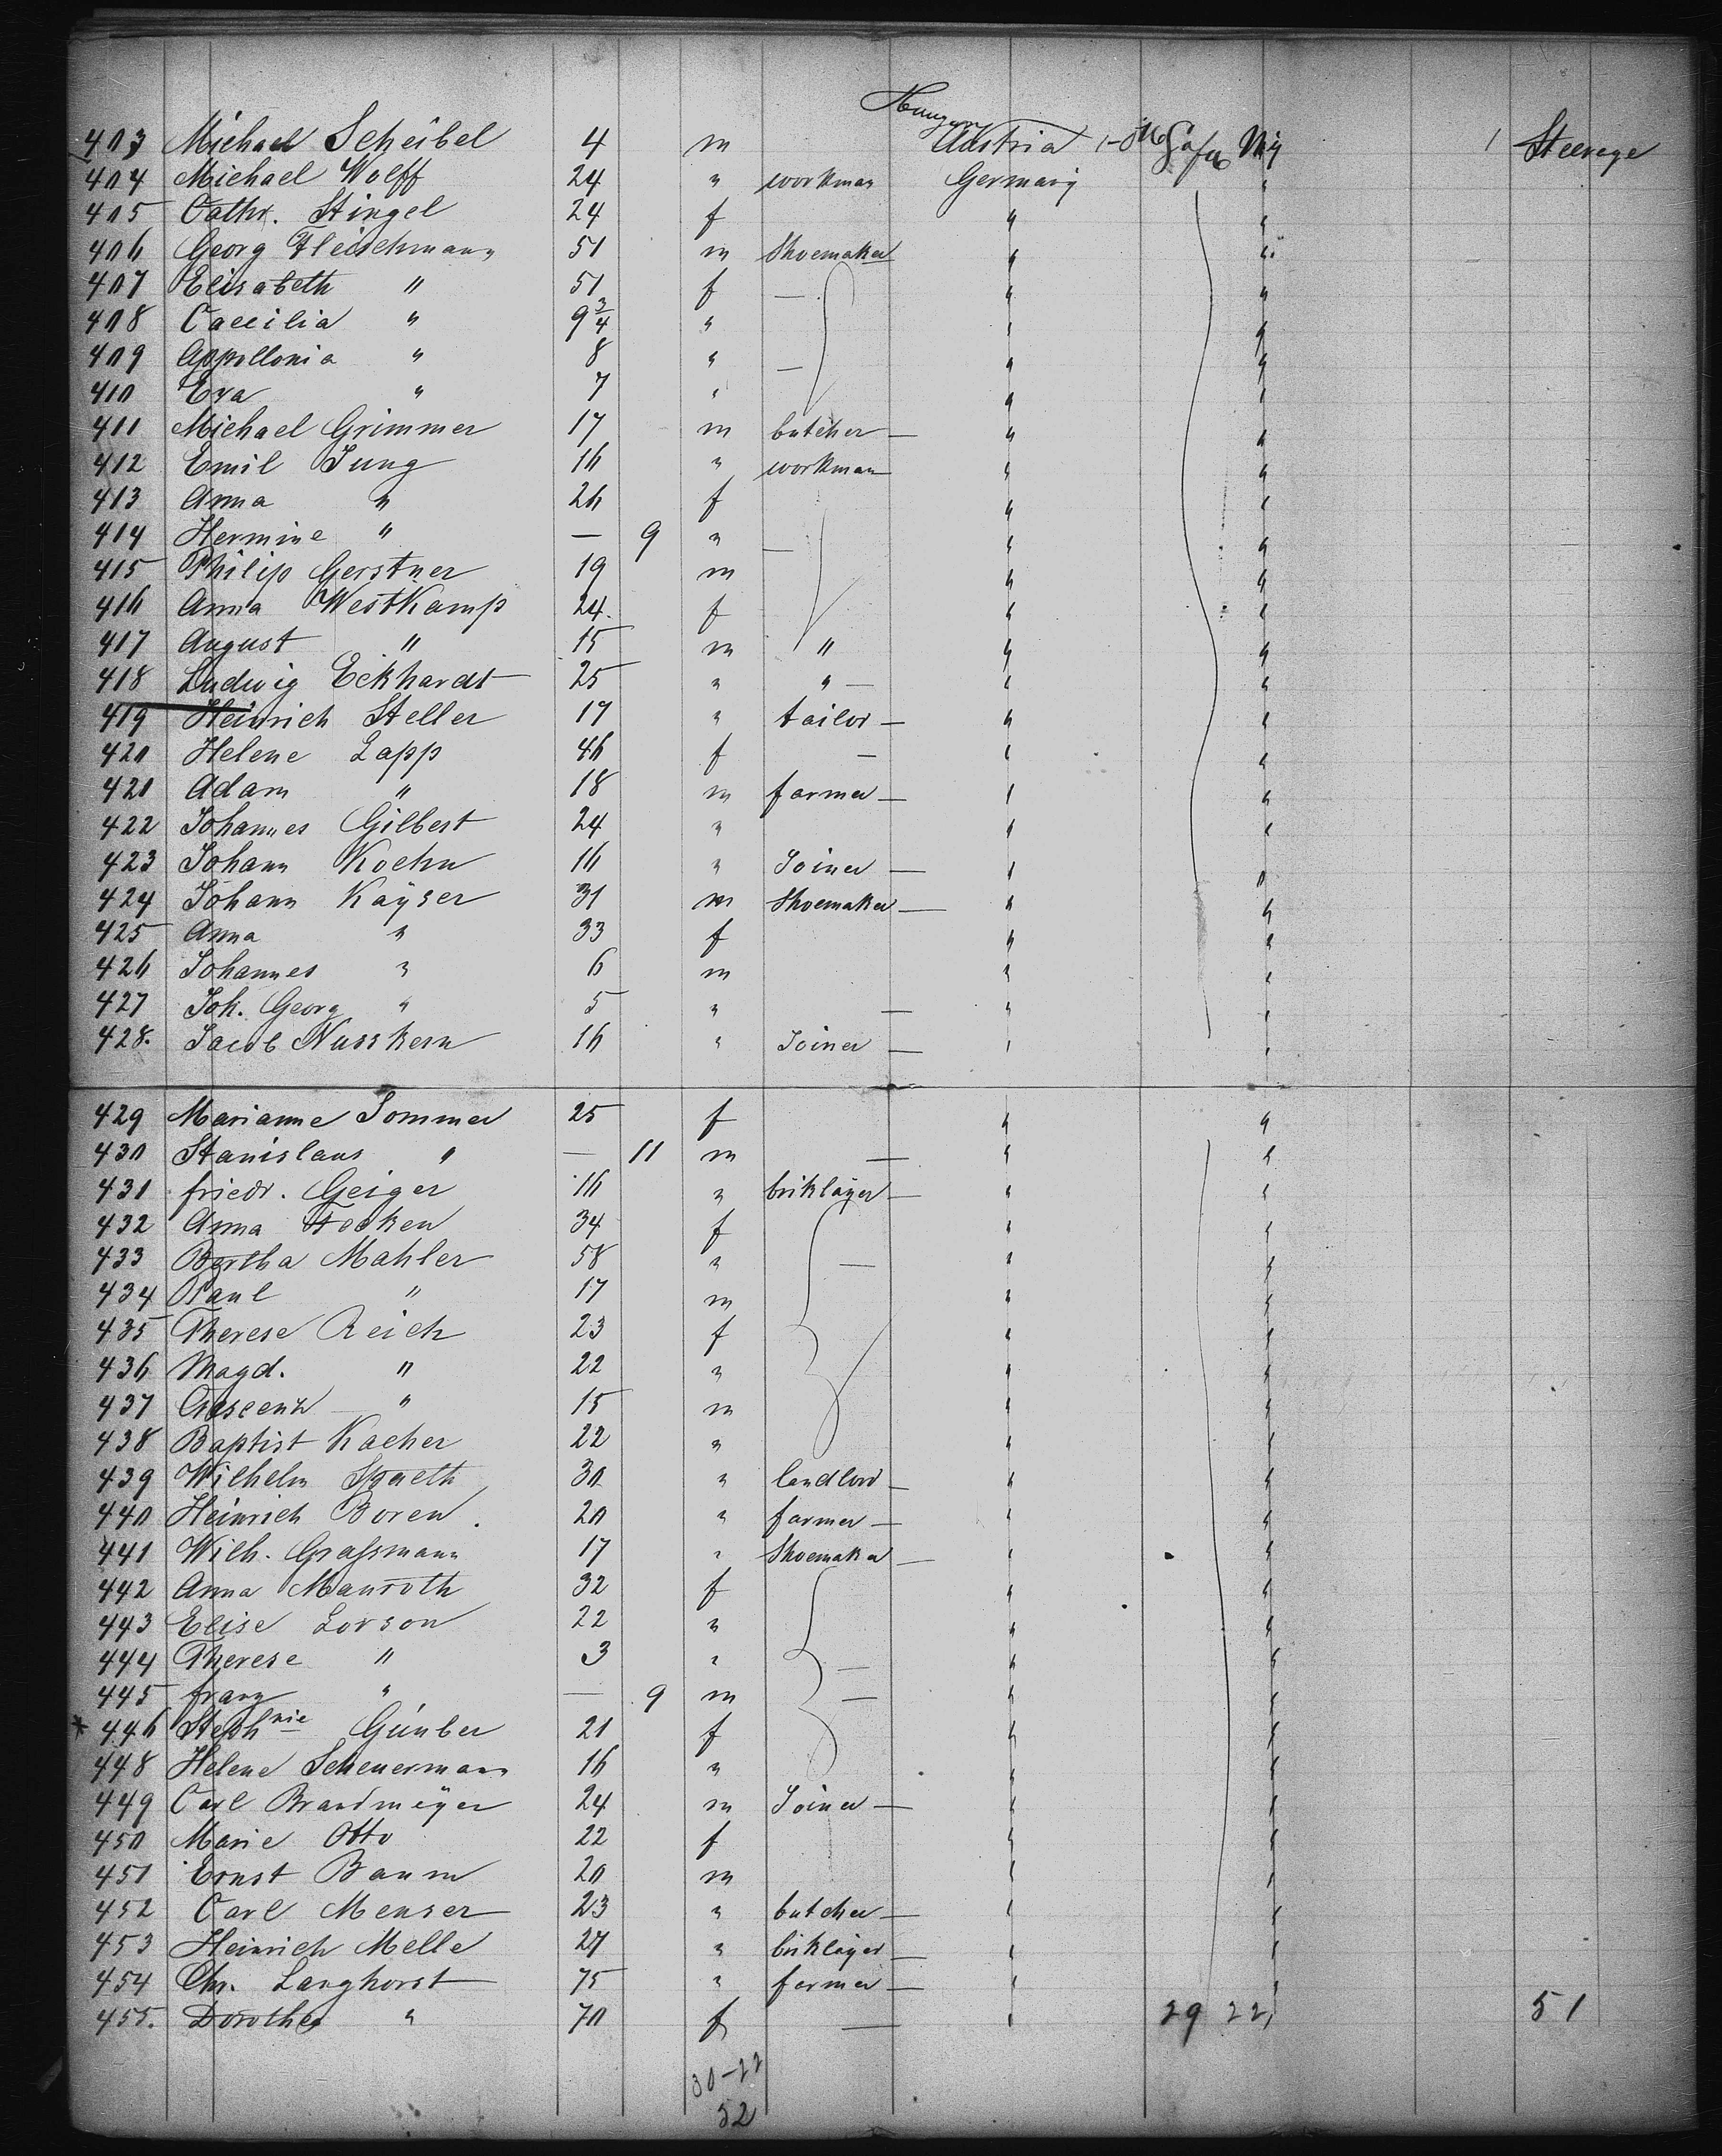 Hungary
403 Michael Scheibel 4 m Austria 1 Steerage
404 Michael Wolff 24 " workman Germany "
405 Cathr. Stingel 24 f " "
406 Georg Fleischmann 51 m Shoemaker " "
407 Elisabeth " 51 f — " "
408 Caecilia " 9 3/4 " " "
409 Appollonia " 8 " — " "
410 Eva " 7 " " "
411 Michael Grimmer 17 m butcher — " "
412 Emil Jung 16 " workman " "
413 Anna " 26 f " "
414 Hermine " — 9 " — " "
415 Philip Gerstner 19 m " "
416 Anna Westkamp 24. f " "
417 August " 15 m " " "
418 Ludwig Eckhardt 25 " " — " "
419 Heinrich Steller 17 " tailor — " "
420 Helene Lapp 46 f — " "
421 Adam " 18 m farmer — " "
422 Johannes Gilbert 24 " " "
423 Johann Koehn 16 " Joiner — " "
424 Johann Kayser 31 m Shoemaker — " "
425 Anna " 33 f " "
426 Johannes " 6 m " "
427 Joh. Georg " 5 " — " "
428. Jacob Nusskern 16 " Joiner — " "
429 Marianne Sommer 25 f " "
430 Stanislaus " — 11 m — " "
431 friedr. Geiger 16 " briklayer — " "
432 Anna Focken 34 f " "
433 Bertha Mahler 58 " — " "
434 Paul " 17 m " "
435 Therese Reich 23 f " "
436 Magd. " 22 " " "
437 Crescenz " 15 m " "
438 Baptist Kacher 22 " " "
439 Wilhelm Spaeth 30 " landlord — " "
440 Heinrich Boren. 20 " farmer — " "
441 Wilh. Grassmann 17 " Shoemaker — " "
442 Anna Manroth 32 f " "
443 Elise Lorson 22 " " "
444 Therese " 3 " — " "
445 franz " — 9 m — " "
* 446 Stephnie Günber 21 f " "
448 Helene Scheuermann 16 " " "
449 Carl Brandmeyer 24 m Joiner — " "
450 Marie Otto 22 f " "
451 Ernst Baum 20 m " "
452 Carl Menser 23 " butcher — " "
453 Heinrich Melle 27 " briklayer — " "
454 Chr. Langhorst 75 " farmer — " "
455. Dorothea " 70 f — " 29 22 51
30-22
52